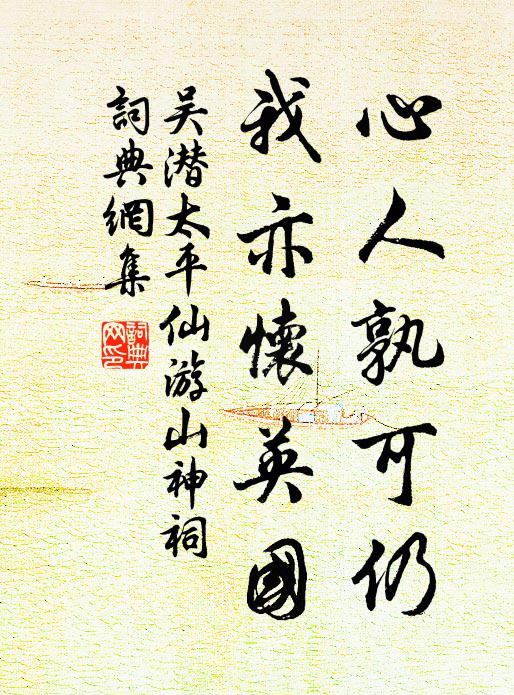 心人孰可仍
我亦懷英國
吴潜太平仙游山神祠
詞典網集
詞典
网印